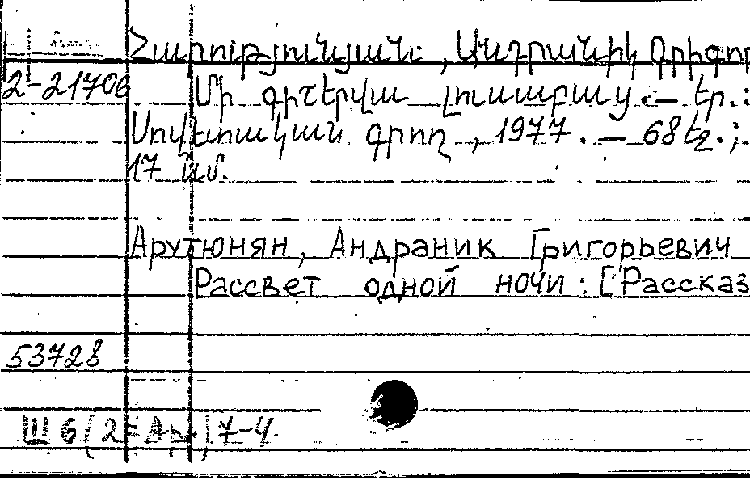 Հարությունյան, Անդրանիկ Գրիգոր
2-21706 Մի գիշերվա լուսաբաց. — Եր.:
Սովետական գրող, 1977. — 68 էջ.;
17 սմ.
Арутюнян, Андраник Григорьевич
Рассвет одной ночи: [Рассказ
53728
Ш6(2=Ар)7-4